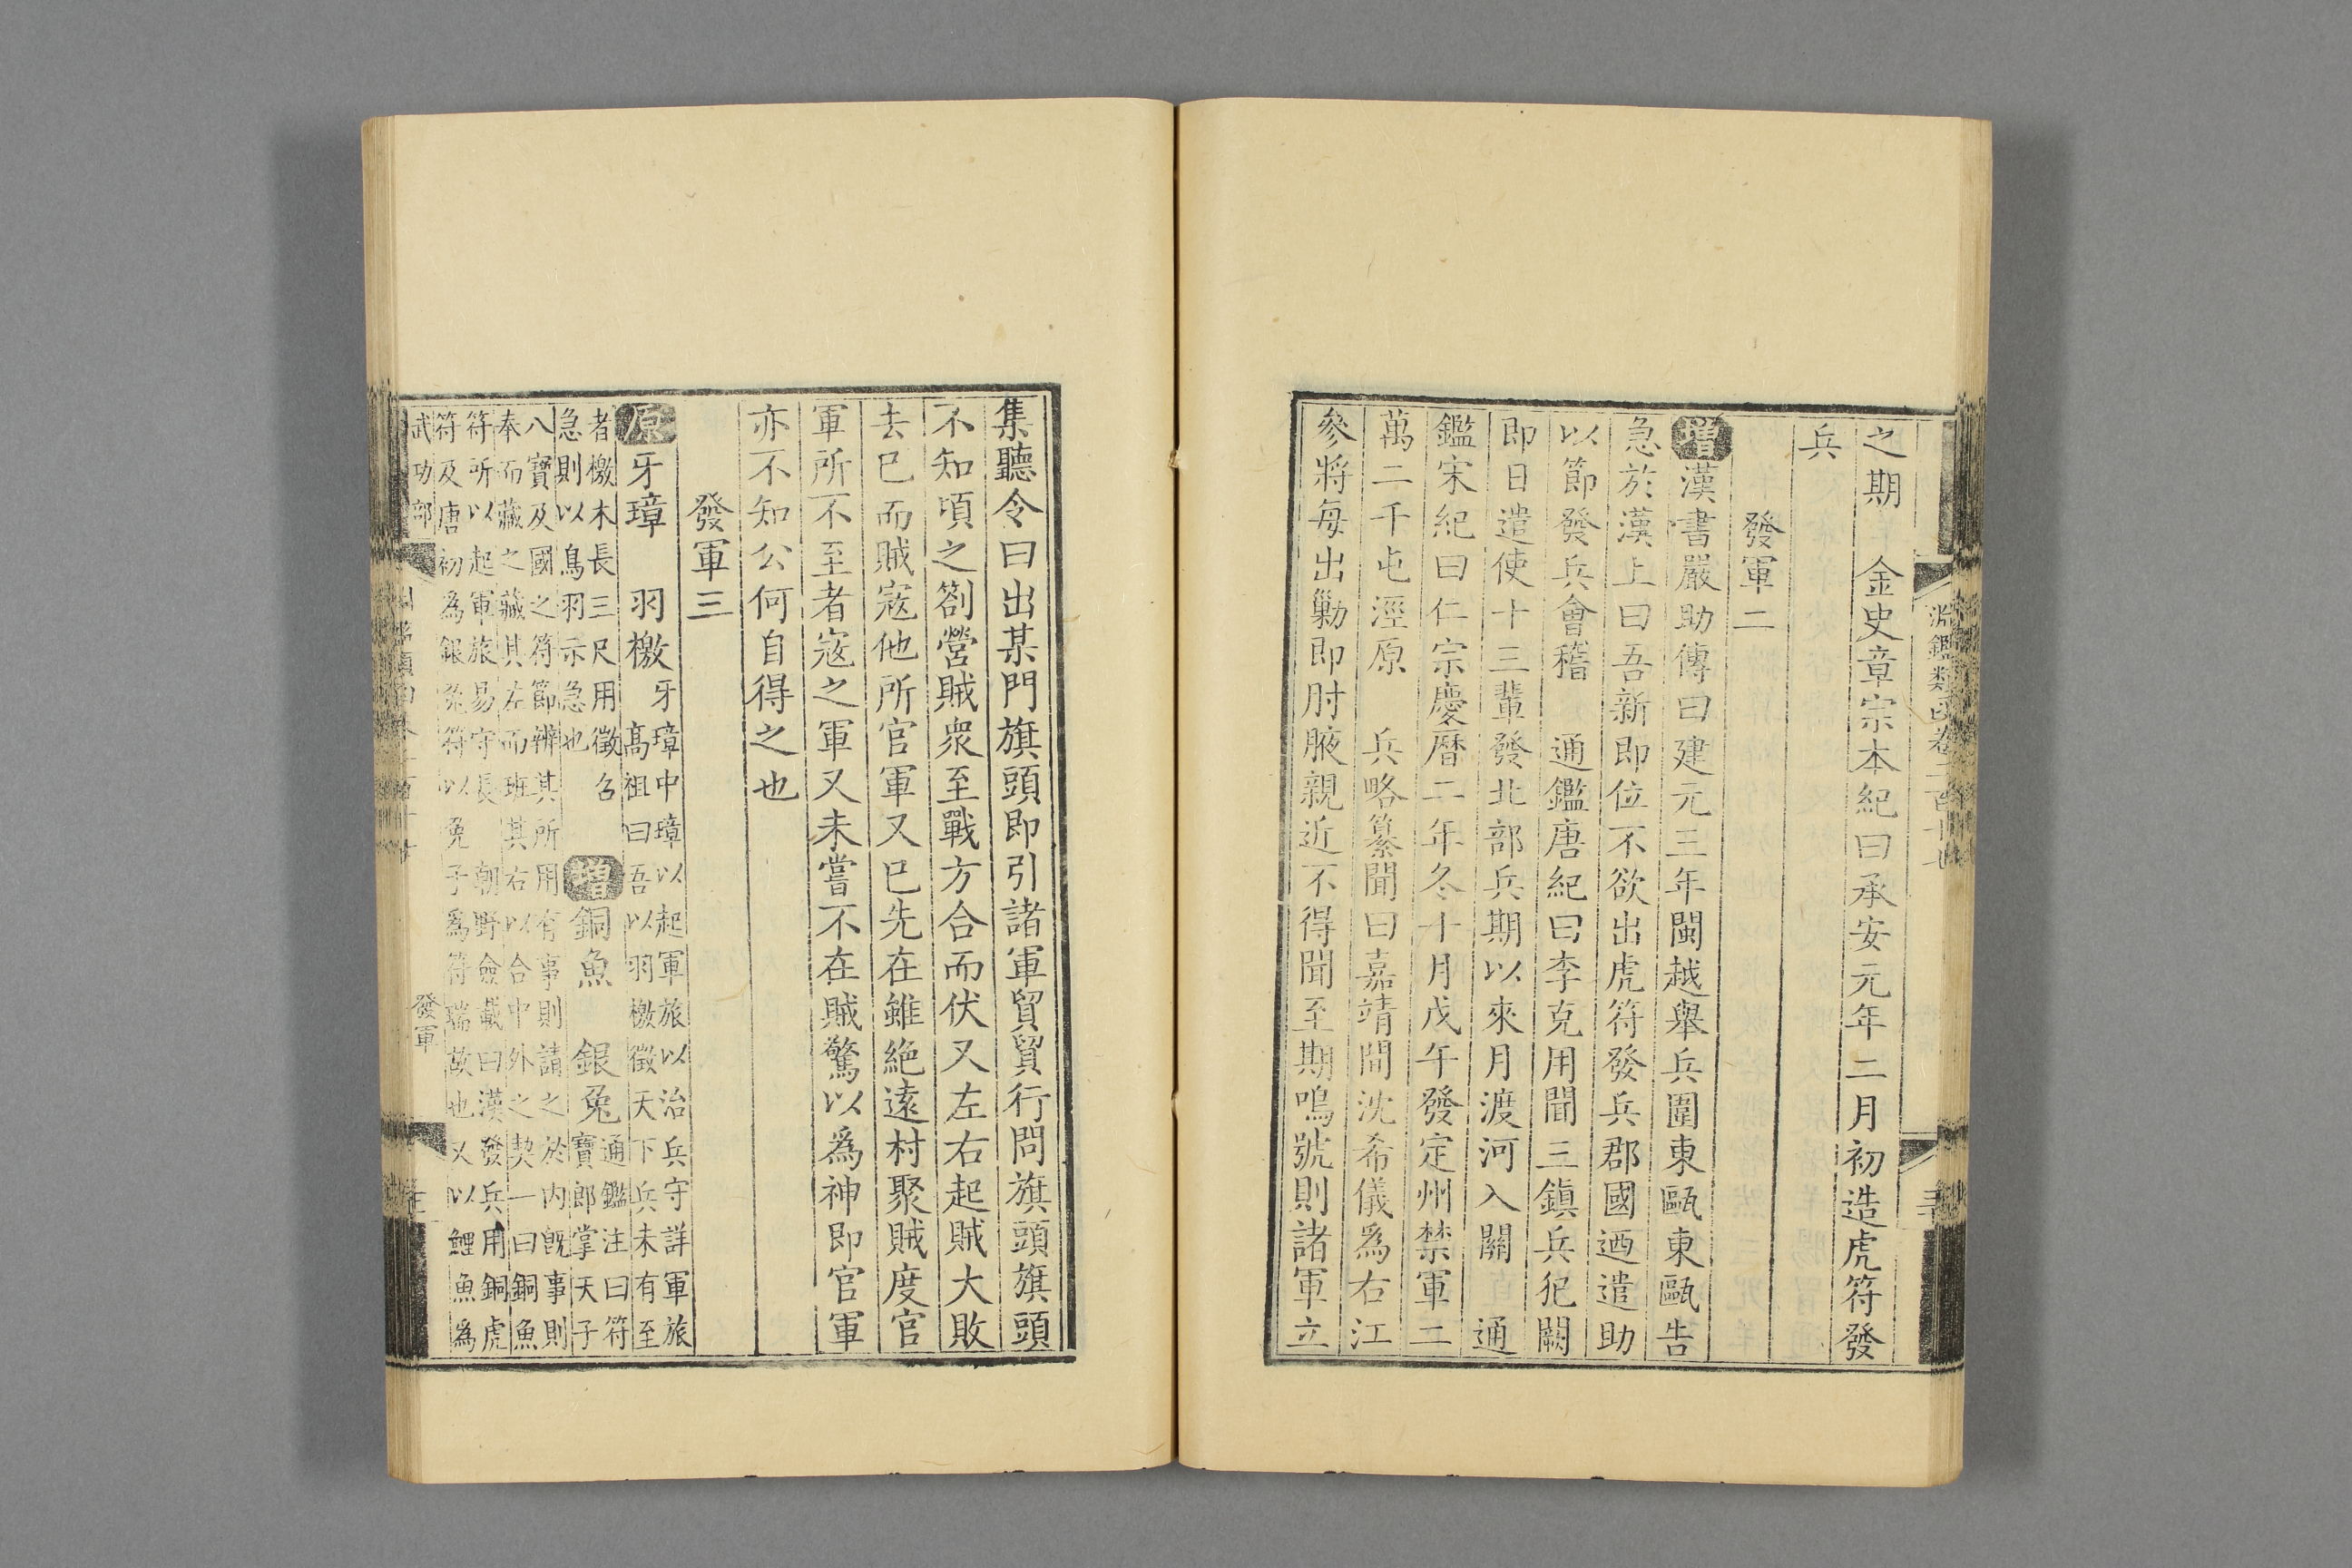 之期　金史章宗本紀曰承安元年二月初造虎符發
兵
發軍二
增漢書嚴助傳曰建元三年閩越舉兵圍東甌東甌告
急於漢上曰吾新即位不欲出虎符發兵郡國迺遣助
以節發兵會稽　通鑑唐紀曰李克用聞三鎮兵犯闕
即日遣使十三輩發北部兵期以來月渡河入關　通
鑑宋紀曰仁宗慶曆二年冬十月戊午發定州禁軍二
萬二千屯涇原　兵略纂聞曰嘉靖間沈希儀為右江
參將每出勦即肘腋親近不得聞至期鳴號則諸軍立
集聽令曰出某門旗頭即引諸軍貿貿行問旗頭旗頭
不知頃之劄營賊衆至戰方合而伏又左右起賊大敗
去已而賊寇他所官軍又已先在雖絶遠村聚賊度官
軍所不至者寇之軍又未嘗不在賊驚以為神即官軍
亦不知公何自得之也
發軍三
原牙璋　羽檄
牙璋中璋以起軍旅以治兵守詳軍旅
高祖曰吾以羽檄徵天下兵未有至
者檄木長三尺用徵召
急則以鳥羽示急也
增銅魚　銀兔
通鑑注曰符
寶郎掌天子
八寶及國之符節辨其所用有事則請之於內旣事則
奉而藏之藏其左而班其右以合中外之契一曰銅魚
符所以起軍旅易守長　朝野僉載曰漢發兵用銅虎
符及唐初為銀兔符以兔子為符瑞故也又以鯉魚為
淵鑑類函卷二百十七
武功部
發軍